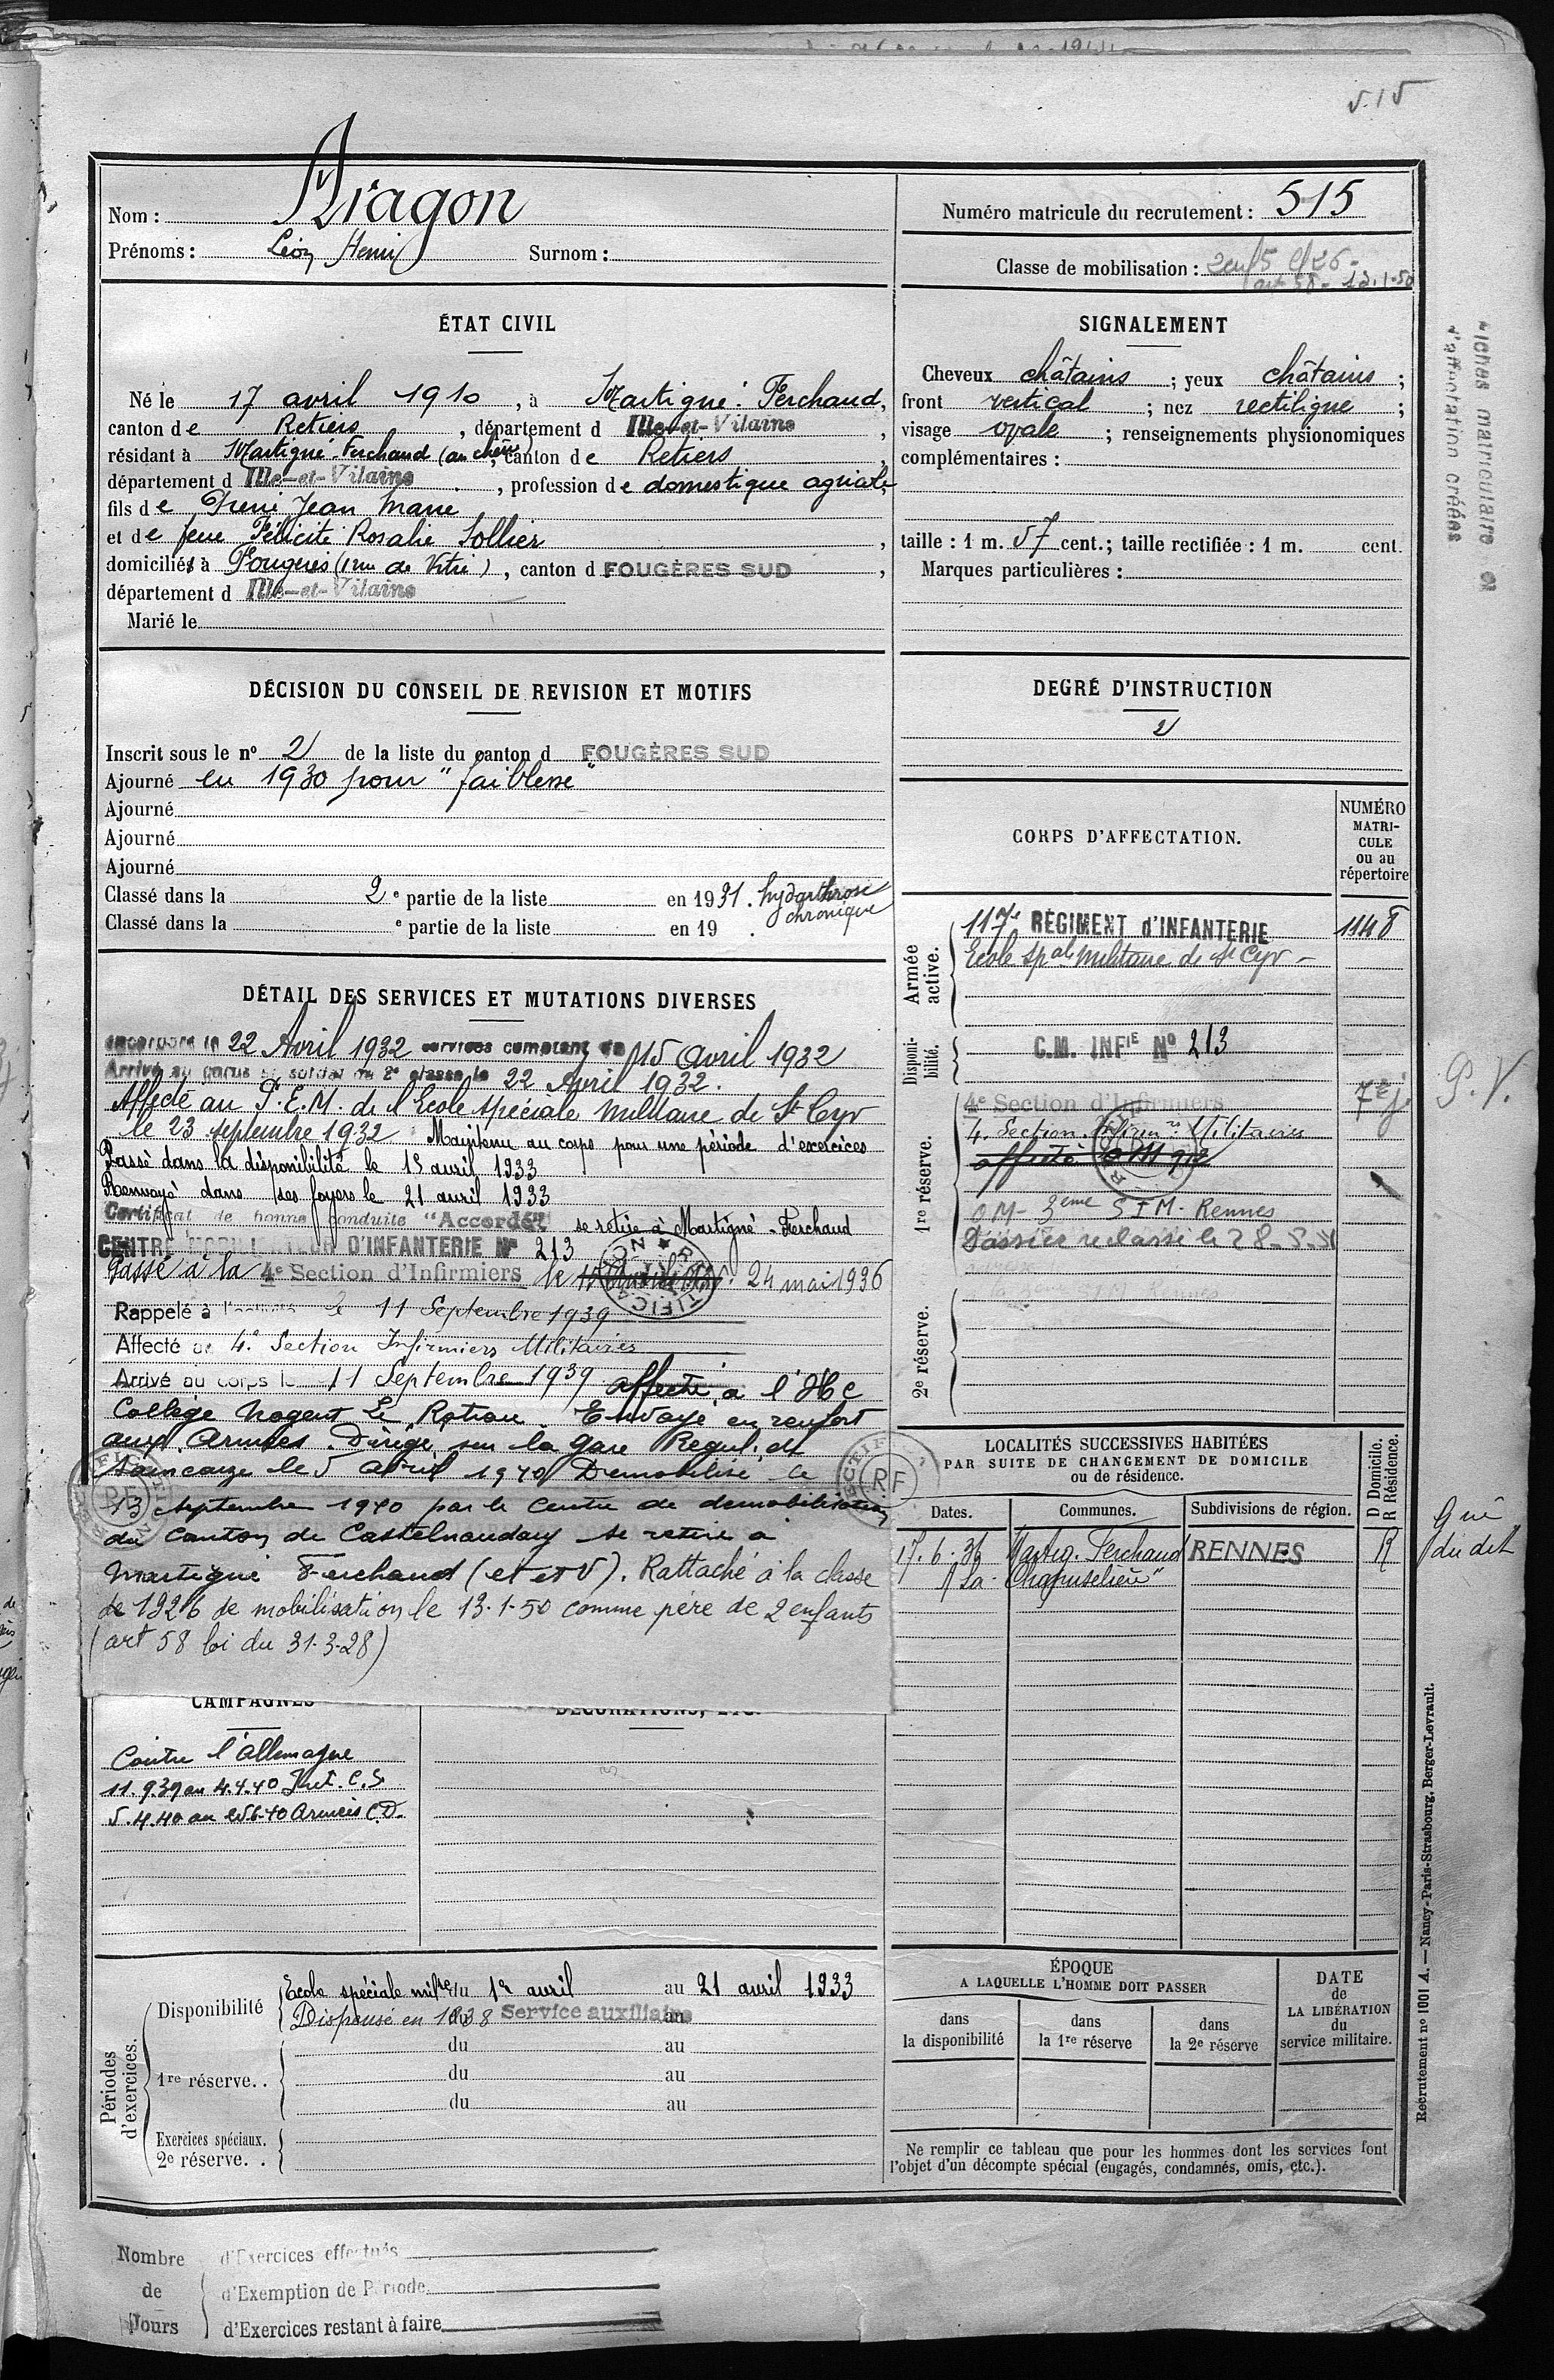 515
Nom : Aragon
Prénoms : Léon Henri Surnom :
Numéro matricule du recrutement : 515
Classe de mobilisation : 2enf5 c/26-
art 58 - 13.1-50
ÉTAT CIVIL
Né le 17 avril 1910, à Martigné-Ferchaud,
canton de Retiers, département d Ille-et-Vilaine,
résidant à Martigné-Ferchaud, canton de Retiers,
département d Ille-et-Vilaine, profession de domestique agricole
fils de Jean Marie
et de feue Félicité Rosalie Sollier,
domiciliés à Fougères (rue de Vitré), canton d FOUGÈRES SUD,
département d Ille-et-Vilaine
Marié le
SIGNALEMENT
Cheveux châtains ; yeux châtains ;
front vertical ; nez rectiligne ;
visage ovale ; renseignements physionomiques
complémentaires :
taille : 1 m. 57 cent. ; taille rectifiée : 1 m. cent.
Marques particulières :
matriculaire et
d'affectation créées
DÉCISION DU CONSEIL DE REVISION ET MOTIFS
Inscrit sous le nº 2 de la liste du canton d FOUGÈRES SUD
Ajourné en 1930 pour "faiblesse"
Ajourné
Ajourné
Ajourné
Classé dans la 2e partie de la liste en 1931. hydarthrose
chronique
Classé dans la e partie de la liste en 19 .
DEGRÉ D'INSTRUCTION
2
CORPS D'AFFECTATION.
NUMÉRO
MATRI-
CULE
ou au
répertoire
Armée
active.
117e RÉGIMENT d'INFANTERIE 1148
Ecole Spale Militaire de St Cyr -
Disponi-
bilité.
C.M. INFIE Nº 213
1re réserve.
4e Section d'Infirmiers
4. Section Infirm. Militaires
affecté
OM - 3eme SIM - Rennes
Dossier reclassé le 28-5-51
2e réserve.
P.V.
DÉTAIL DES SERVICES ET MUTATIONS DIVERSES
Incorporé le 22 Avril 1932 services comptant du 15 avril 1932
Arrivé au corps et soldat de 2e classe le 22 Avril 1932.
Affecté au P.E.M. de l'Ecole spéciale militaire de St Cyr
le 23 septembre 1932 Maintenu au corps pour une période d'exercices
Passé dans la disponibilité le 15 avril 1933
Renvoyé dans ses foyers le 21 avril 1933
Certificat de bonne conduite "Accordé" se retire à Martigné-Ferchaud
CENTRE MOBILISATEUR D'INFANTERIE Nº 213
Passé à la 4e Section d'Infirmiers le 24 mai 1936
Rappelé à l'activité le 11 Septembre 1939
Affecté à 4e Section Infirmiers Militaires
Arrivé au corps le 11 Septembre 1939 affecté à l'H C
Collège Nogent Le Rotrou. Envoyé en renfort
aux Armées. Dirigé sur la Gare Régul. de
le 5 avril 1940 Démobilisé le
13 septembre 1940 par le centre de démobilisation
du canton de Castelnaudary se retire à
Martigné Ferchaud (et et V). Rattaché à la classe
de 1926 de mobilisation le 13-1-50 comme père de 2 enfants
(art 58 loi du 31-3-28)
RF
RF
LOCALITÉS SUCCESSIVES HABITÉES
PAR SUITE DE CHANGEMENT DE DOMICILE
ou de résidence.
Dates.
Communes.
Subdivisions de région.
D Domicile.
R Résidence.
17.6.36 Martig. Ferchaud RENNES R
"La
Gne
du dit
CAMPAGNES
DÉCORATIONS, ETC.
Contre l'Allemagne
11.9.39 au 4.4.40 Int. C.S.
5.4.40 au 25.6.40 Armées C.D.
Périodes
d'exercices.
Disponibilité
Ecole spéciale milre du 1er avril au 21 avril 1933
Dispensé en 1938 Service auxiliaire
1re réserve..
du au
du au
du au
Exercices spéciaux.
2e réserve. .
ÉPOQUE
A LAQUELLE L'HOMME DOIT PASSER
dans
la disponibilité
dans
la 1re réserve
dans
la 2e réserve
DATE
de
LA LIBÉRATION
du
service militaire.
Ne remplir ce tableau que pour les hommes dont les services font
l'objet d'un décompte spécial (engagés, condamnés, omis, etc.).
Recrutement nº 1001 A. — Nancy-Paris-Strasbourg, Berger-Levrault.
Nombre
de
Jours
d'Exercices effectués
d'Exemption de Période
d'Exercices restant à faire